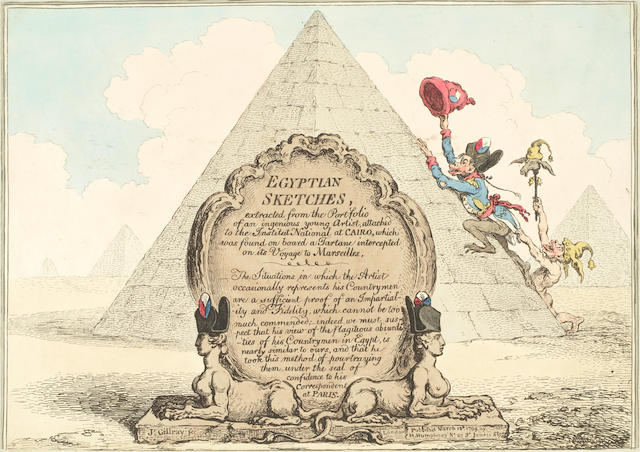 EGYPTIAN
SKETCHES,
extracted from the Portfolio
of an ingenious young Artist, attaché
to the Institut National at CAIRO, which
was found on board a Tartane intercepted
on its Voyage to Marseilles.
The Situations in which the Artist
occasionally represents his Countrymen
are a sufficient proof of an Impartial-
ity and Fidelity, which cannot be too
much commended; indeed we must sus-
pect that his view of the flagitious absurdi-
ties of his Countrymen in Egypt, is
nearly similar to ours, and that he
took this method of pourtraying
them, under the seal of
confidence to his
Correspondent
at PARIS.
Js Gillray
London
Publish'd March 12th 1799, by
H. Humphrey No 27 St James's